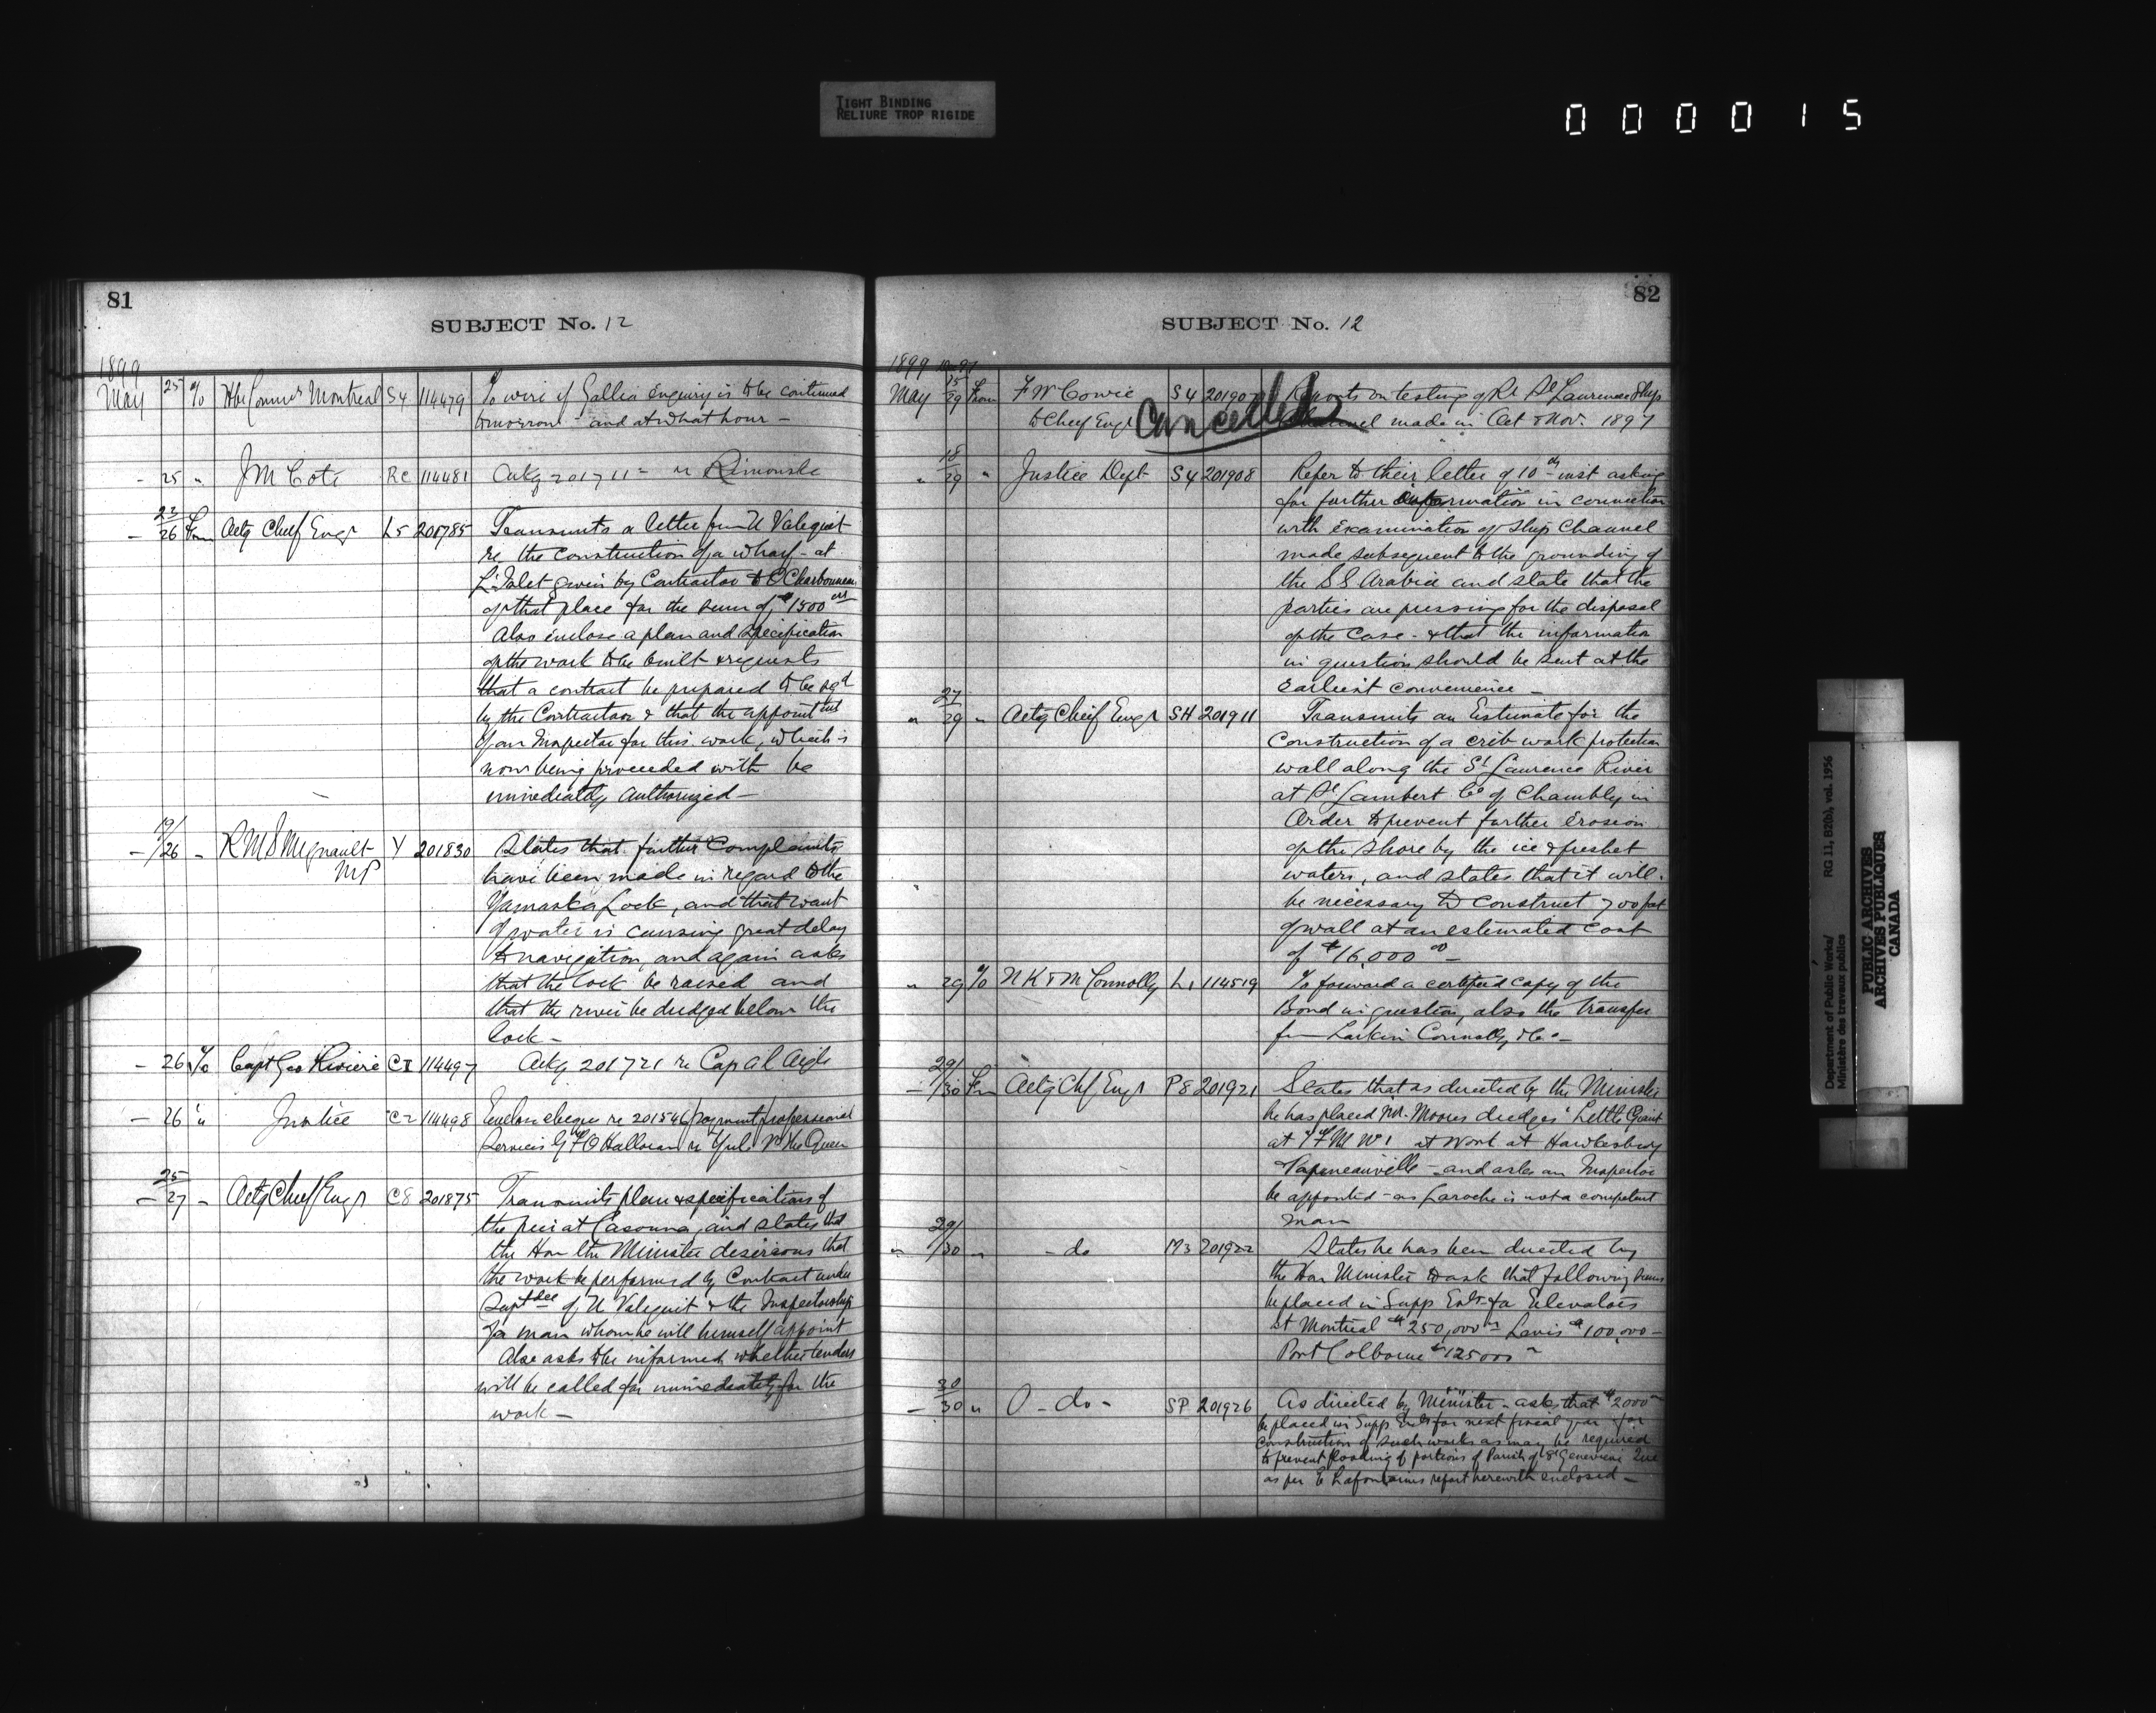 TIGHT BINDING
RELIURE TROP RIGIDE
000015
81
SUBJECT No. 12
1899
May 25 % Hbr Commrs Montreal S4 114479 To wire if Gallia enquiry is to be continued
tomorrow - and at what hour -
- 25 " J M Coté Rc 114481 Ackg 201711 = re Rimouski
23
- 26 From Actg Chief Engr L5 201785 Transmits a letter from U Valiquet
re the construction of a wharf - at
L'Islet given by Contractor to C Charbonneau
of that place for the sum of $1500
Also enclose a plan and specification
of the work to be built & requests
that a contract be prepared to be sgd
by the Contractor & that the appointmt
of an Inspector for this work, which is
now being proceeded with be
immediately authorized -
19/
- /26 " R M S Mignault Y 201830 States that further Complaints
MP have been made in regard to the
Yamaska Lock, and that want
of water is causing great delay
to navigation, and again asks
that the lock be raised and
that the river be dredged below the
lock -
- 26 % Capt Geo Riviere CI 114497 Ackg 201721 re Cap al Aigle
- 26 " Justice C2 114498 Enclose cheque re 201546 payment professional
Services G F O'Halloran re Yule vs the Queen
25
- 27 - Actg Chief Engr C8 201875 Transmits plan & specification of
the pier at Cacouna, and states that
the Hon the Minister desirous that
the work be performed by Contract under
Suptdce of U Valiquet & the Inspectorship
of a man whom he will himself appoint
Also asks to be informed whether tenders
will be called for immediately for the
work -
82
SUBJECT No. 12
1899
May 29 From F W Cowie S4 20190 Reports on testing of Rr St Lawrence Ship
to Chief Engr Cancelled Channel made in Oct & Nov. 1897
18
" 29 " Justice Dept S4 201908 Refer to their letter of 10th inst asking
for further information in connection
with examination of Ship Channel
made subsequent to the grounding of
the SS Arabia and state that the
parties are pressing for the disposal
of the case - & that the information
in question should be sent at the
earliest convenience -
27
" 29 " Actg Chief Engr SH 201911 Transmits an Estimate for the
Construction of a crib work protection
wall along the St Lawrence River
at St Lambert Co of Chambly in
Order to prevent further erosion
of the shore by the ice & freshet
waters, and states that it will
be necessary to construct 700 feet
of wall at an estimated cost
of $16,000 00 -
" 29 % N K & M Connolly L1 114519 To forward a certified copy of the
Bond in question, also the transfer
from Larkin Connolly & Co -
29/
- /30 From Actg Chf Engr P8 201921 States that as directed by the Minister
he has placed Mr. Moores dredges "Little Giant
at work at Hawkesbury
Papineauville - and asks an Inspector
be appointed - as Laroche is not a competent
man
29/
" /30 " - do M3 201922 States he has been directed by
the Hon Minister to ask that following sums
be placed in Supp Ests for Elevators
at Montreal $250,000 Levis $100,000 -
Port Colborne $125000
30
- 30 " - do - SP 201926 As directed by Minister - asks that $2000
be placed in Supp Ests for next fiscal year for
construction of such works as may be required
to prevent flooding of portions of Parish of Ste Genevieve Que
as per E Lafontaines report herewith enclosed -
Department of Public Works/
Ministère des travaux publics
RG 11, B2(b), vol. 1956
PUBLIC ARCHIVES
ARCHIVES PUBLIQUES
CANADA